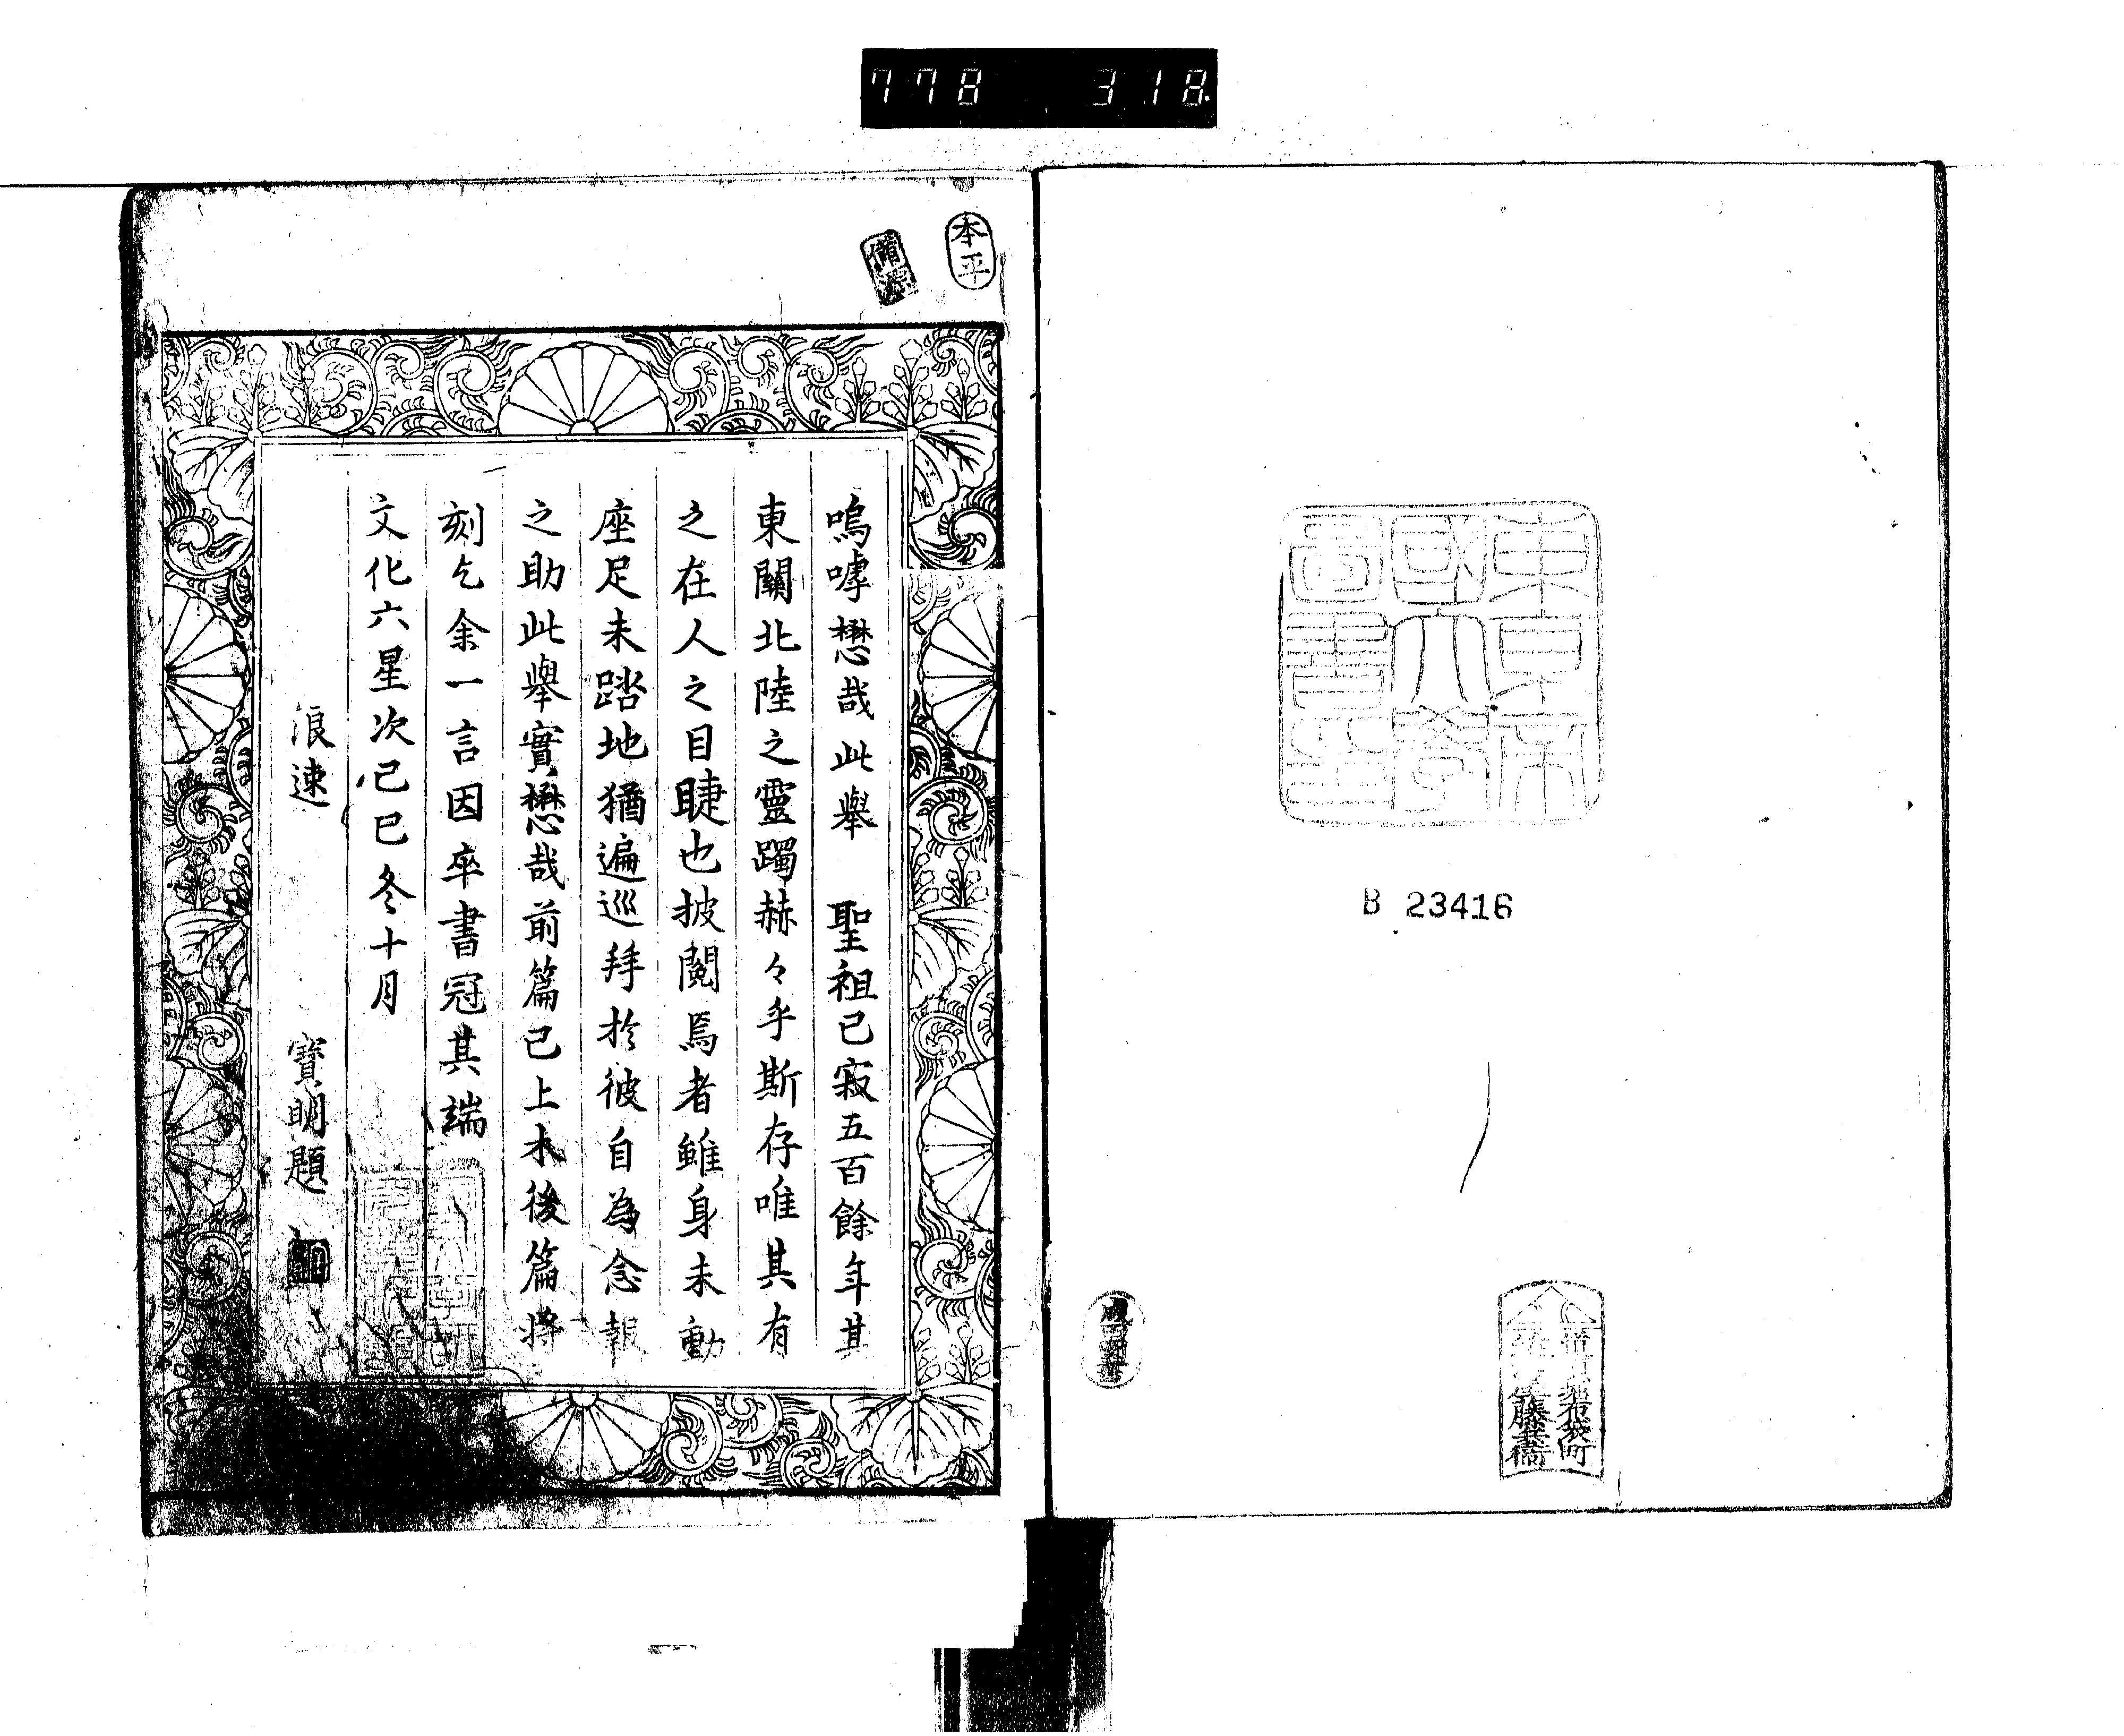 778 318.
東京帝
國大學
圖書印
B 23416
本平
嗚嘑懋哉此舉 聖祖已寂五百餘年其
東關北陸之靈躅赫々乎斯存唯其有
之在人之目睫也披閱焉者雖身未動
座足未踏地猶遍巡拜於彼自為念報
之助此舉實懋哉前篇已上木後篇將
刻乞余一言因卒書冠其端
文化六星次己巳冬十月
浪速 寶明題